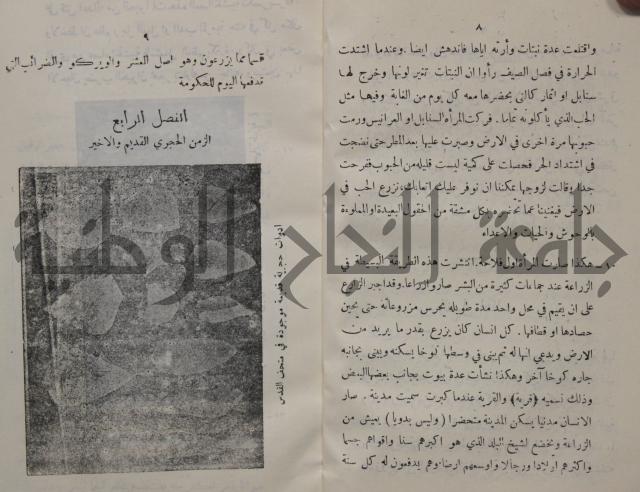 ٨
واقتلعت عدة نبتات وأرته اياها فاندهش ايضا . وعندما اشتدت
الحرارة في فصل الصيف رأوا ان النبتات تغير لونها وخرج لها
سنابل او اثمار كالتي يحضرها معه كل يوم من الغابة وفيها مثل
الحب الذي يأكلونه تماما . فركت المرأة السنابل او العرانيس ورمت
حبوبها مرة اخرى في الارض وصبرت عليها بعد المطر حتى نضجت
في اشتداد الحر فحصلت على كمية ليست قليلة من الحبوب ففرحت
جدا وقالت لزوجها يمكننا ان نوفر عليك اتعابك، نزرع الحب في
الارض فيغنينا عما تحضره بكل مشقة من الحقول البعيدة او المملوءة
بالوحوش والحيات والاعداء
هكذا صارت المرأة اول فلاحة. انتشرت هذه الطريقة البسيطة في
الزراعة عند جماعات كثيرة من البشر صاروا زراعا. وقد اجبر الزارع
على ان يقيم في محل واحد مدة طويله يحرس مزروعاته حتى يحين
حصادها او قطافها . كل انسان كان يزرع بقدر ما يريد من
الارض ويدعي انها له ثم يبني في وسطها كوخا يسكنه ويبني بجانبه
جاره كوخا آخر وهكذا نشأت عدة بيوت بجانب بعضها البعض
وذلك نسميه (قرية) والقرية عندما كبرت سميت مدينة . صار
الانسان مدنيا يسكن المدينة متحضرا (وليس بدويا) يعيش من
الزراعة ويخضع لشيخ البلد الذي هو اكبرهم سنا واقواهم جسما
واكثرهم اولادا ورجالا واوسعهم ارضا. وهم يدفعون له كل سنة
٩
قسما مما يزرعون وهو اصل العشر والويركو والضرائب التي
تدفعها اليوم للحكومة
الفصل الرابع
الزمن الحجري القديم والاخير
ادوات حجرية قديمة موجودة في متحف القدس
جامعة النجاح الوطنية